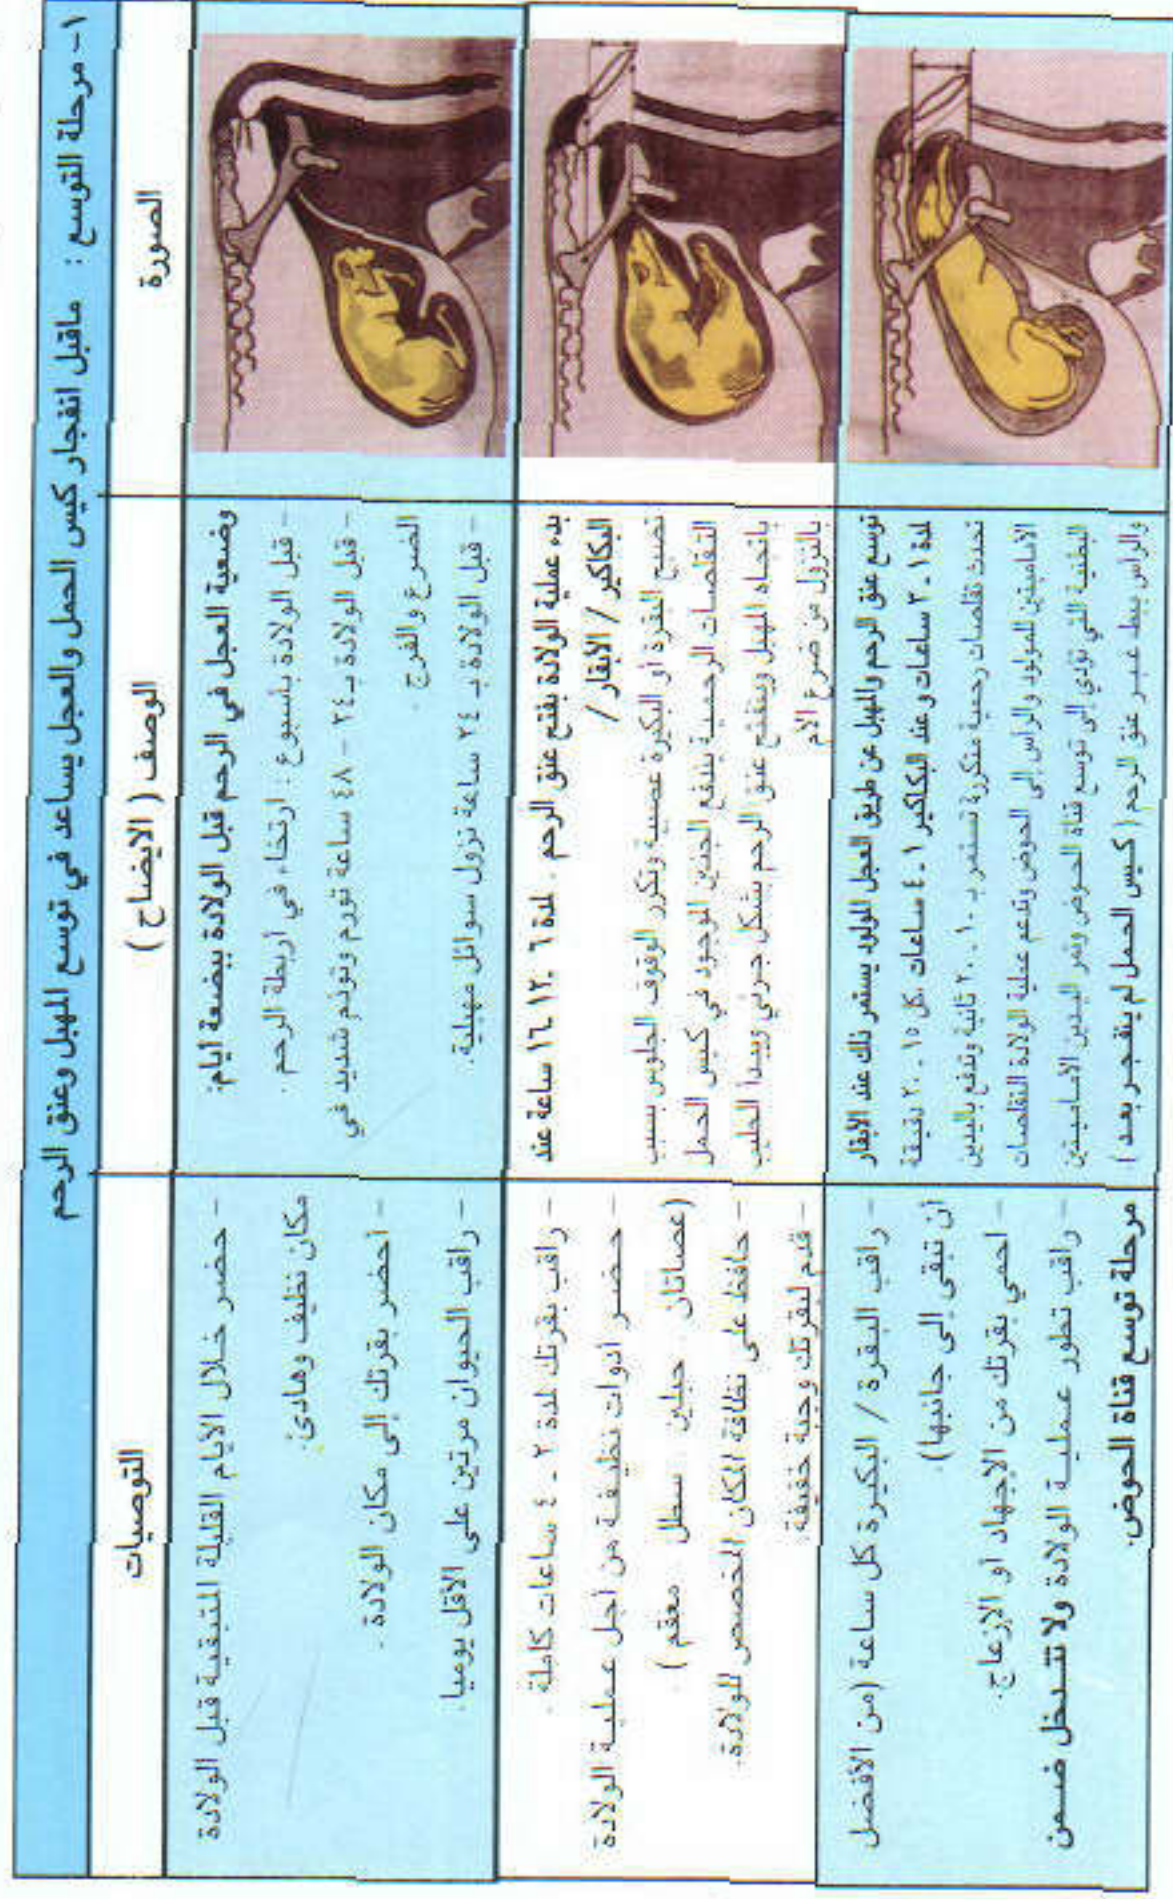 ١- مرحلة التوسع : ماقبل انفجار كيس الحمل والعجل يساعد في توسع المهبل وعنق الرحم
الصورة
الوصف ( الايضاح )
التوصيات
وضعية العجل في الرحم قبل الولادة ببضعة ايام:
- قبل الولادة بأسبوع : ارتخاء في أربطة الرحم .
- قبل الولادة بـ ٢٤ - ٤٨ ساعة تورم وتوذم شديد في
الضرع والفرج .
- قبل الولادة بـ ٢٤ ساعة نزول سوائل مهبلية.
- حضر خلال الايام القليلة المتبقية قبل الولادة
مكان نظيف وهادئ.
- احضر بقرتك إلى مكان الولادة .
- راقب الحيوان مرتين على الاقل يوميا.
بدء عملية الولادة بفتح عنق الرحم . لمدة ٦ ١٢، ١٦ ساعة عند
البكاكير / الأبقار /
تصبح البقرة أو البكيرة عصبية وتكرر الوقوف الجلوس بسبب
التقلصات الرحمية يندفع الجنين الموجود في كيس الحمل
باتجاه المهبل وينفتح عنق الرحم بشكل جزئي ويبدا الحليب
بالنزول من ضرع الأم
- راقب بقرتك لمدة ٢ - ٤ ساعات كاملة .
- حضر ادوات نظيفة من أجل عملية الولادة
(عصاتان . حبلين . سطل . معقم ) .
- حافظ على نظافة المكان المخصص للولادة.
- قدم لبقرتك وجبة خفيفة.
توسع عنق الرحم والمهبل عن طريق العجل المولود يستمر ذلك عند الأبقار
لمدة ١ - ٢ ساعات وعند البكاكير ١ - ٤ ساعات .كل ١٥ - ٢٠ دقيقة
تحدث تقلصات رحمية متكررة تستمر بـ ١٠ - ٢٠ ثانية وتدفع باليدين
الاماميتين للمولود والراس إلى الحوض وتدعم عملية الولادة التقلصات
البطنية التي تؤدي إلى توسع قناة الحوض وتمر اليدين الاماميتين
والراس ببطء عبر عنق الرحم ( كيس الحمل لم ينفجر بعد )
- راقب البقرة / البكيرة كل ساعة (من الأفضل
أن تبقى إلى جانبها).
- احمي بقرتك من الاجهاد أو الازعاج.
- راقب تطور عملية الولادة ولا تتدخل ضمن
مرحلة توسع قناة الحوض.